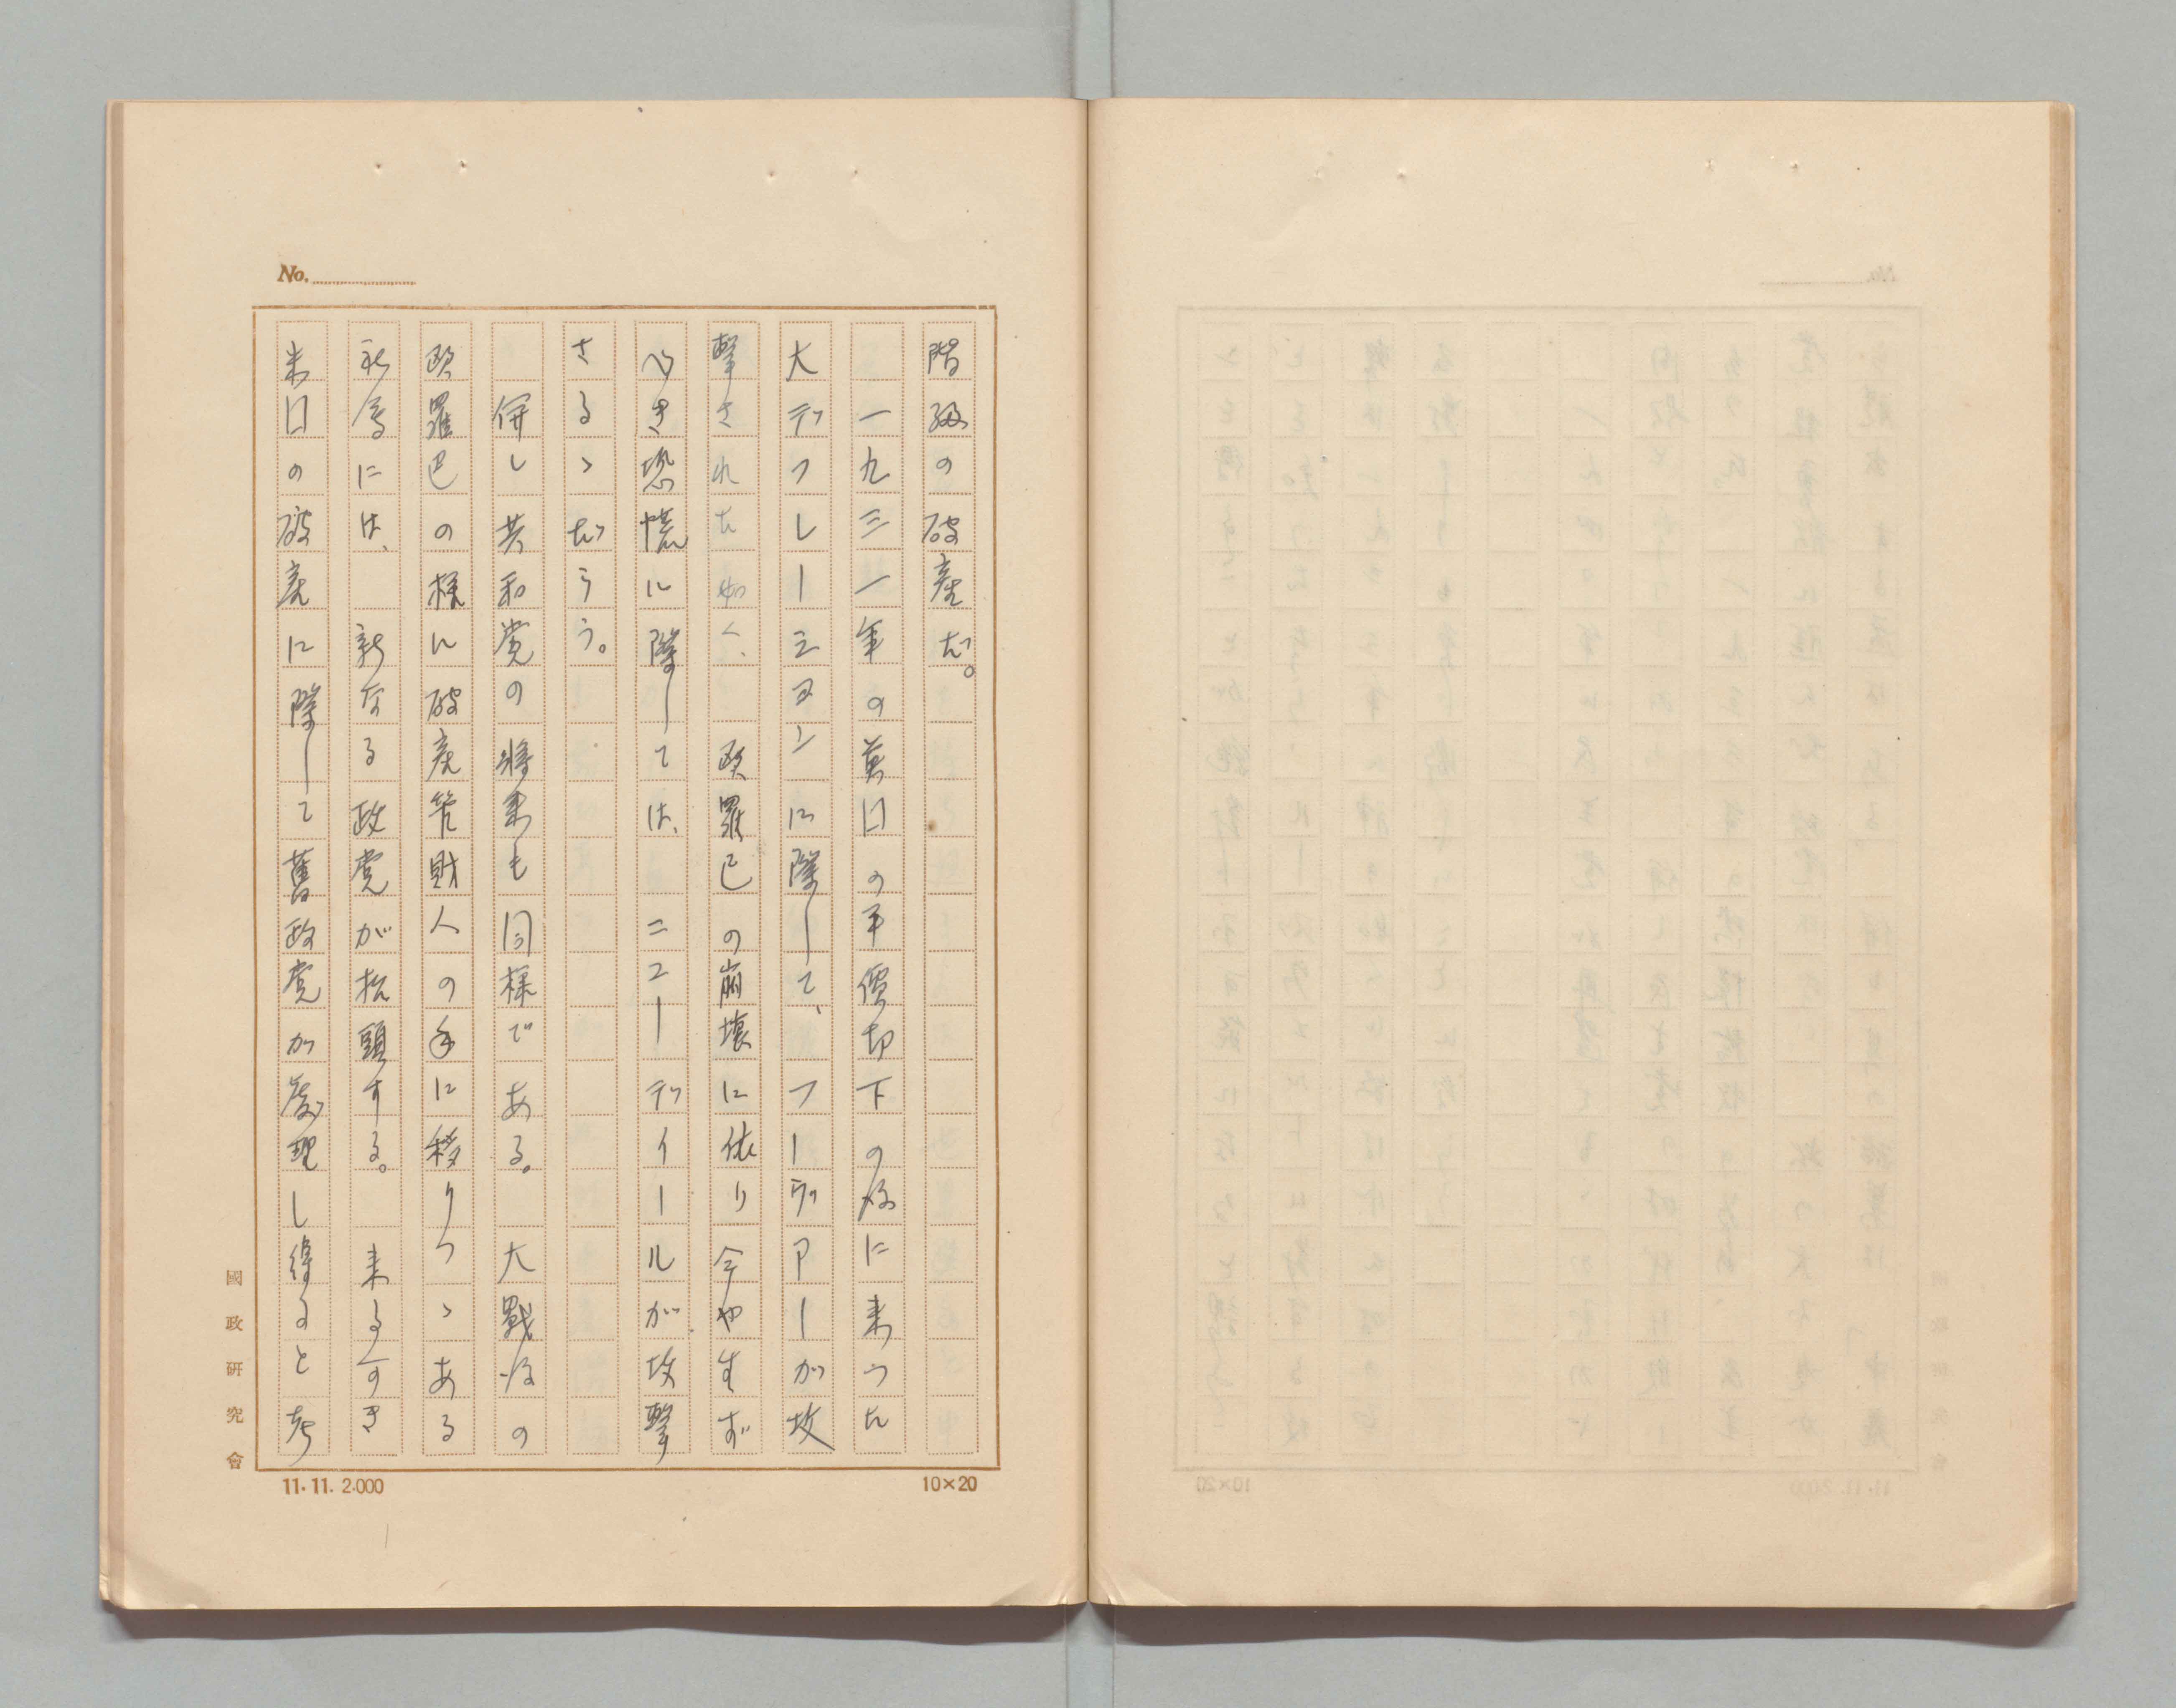 No.
階級の破産だ。
一九三一年の萬国の平價切下の後に来つた
大デフレーシヨンに際して、フーヴアーが攻
撃された如く、欧羅巴の崩壊に依り今や生ず
べき恐慌に際しては、ニユーデイールが攻撃
さるゝだらう。
併し共和党の将来も同様である。大戰後の
欧羅巴の様に破産管財人の手に移りつゝある
社会には、新なる政党が抬頭する。来るすき
米国の破産に際して舊政党が處理し得ると考
國政研究會
11.11.2.000
10×20